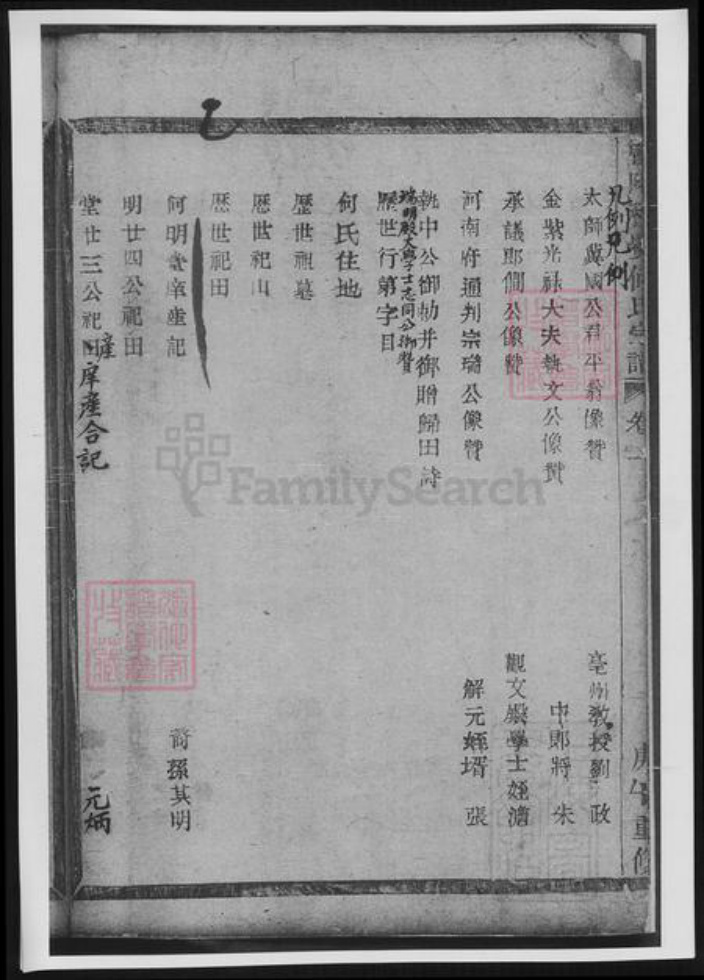 何氏宗譜 卷
庚午重修
凡例凡例
太師冀國公君平翁像贊 亳州教授劉政
金紫光祿大夫執文公像贊 中郎將朱
承議郎僴公像贊 觀文殿學士姪澹
河南府通判宗瑞公像贊 解元姪壻張
執中公御勅并御贈歸田詩
端明殿大學士志同公御贊
歷世行第字目
何氏住地
歷世祖墓
歷世祀山
歷世祀田
何明堂庠產記 裔孫其明
明廿四公祀田
堂廿三公祀田產庠產合記 元炳
乙
FamilySearch